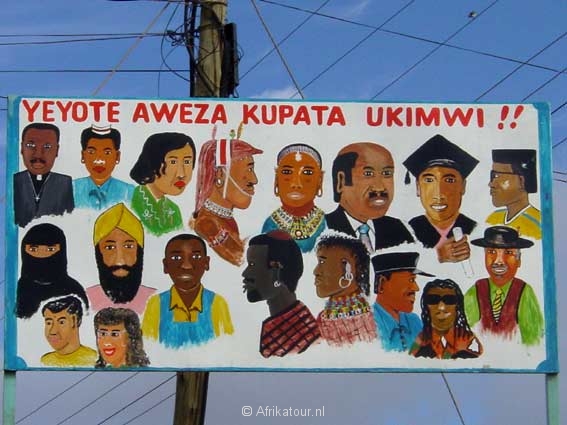 YEYOTE AWEZA KUPATA UKIMWI !!
© Afrikatour.nl